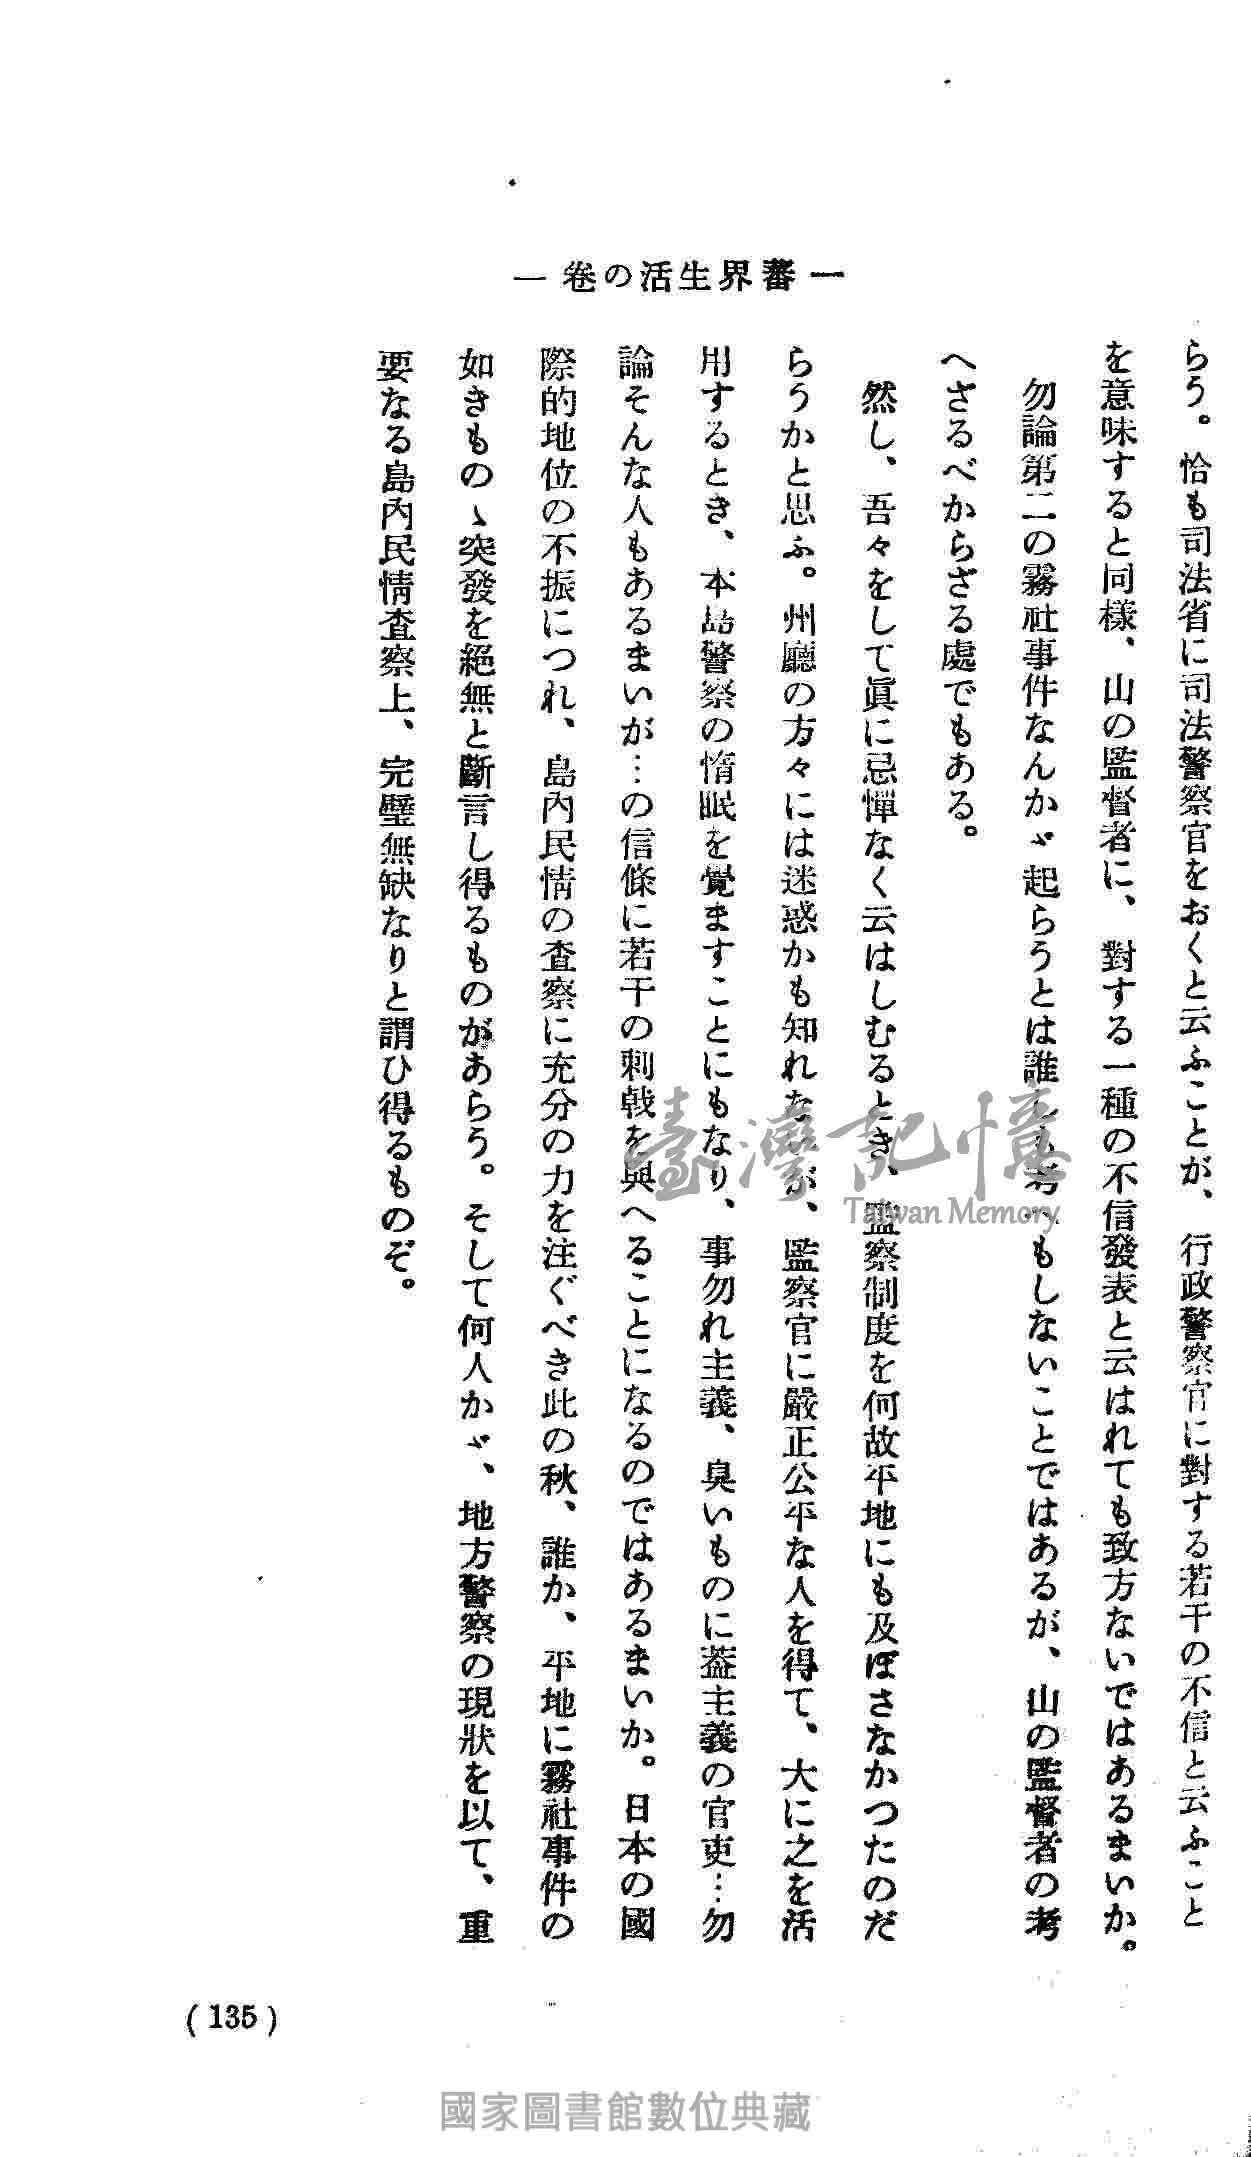 一 蕃界生活の卷 一
らう。恰も司法省に司法警察官をおくと云ふことが、行政警察官に對する若干の不信と云ふこと
を意味すると同樣、山の監督者に、對する一種の不信發表と云はれても致方ないではあるまいか。
勿論第二の霧社事件なんかゞ起らうとは誰しも考へもしないことではあるが、山の監督者の考
へざるべからざる處でもある。
然し、吾々をして眞に忌憚なく云はしむるとき、監察制度を何故平地にも及ぼさなかつたのだ
らうかと思ふ。州廳の方々には迷惑かも知れないが、監察官に嚴正公平な人を得て、大に之を活
用するとき、本島警察の惰眠を覺ますことにもなり、事勿れ主義、臭いものに蓋主義の官吏…勿
論そんな人もあるまいが…の信條に若干の刺戟を與へることになるのではあるまいか。日本の國
際的地位の不振につれ、島內民情の査察に充分の力を注ぐべき此の秋、誰か、平地に霧社事件の
如きものゝ突發を絕無と斷言し得るものがあらう。そして何人かゞ、地方警察の現狀を以て、重
要なる島內民情査察上、完璧無缺なりと謂ひ得るものぞ。
(135)
臺灣記憶
Taiwan Memory
國家圖書館數位典藏